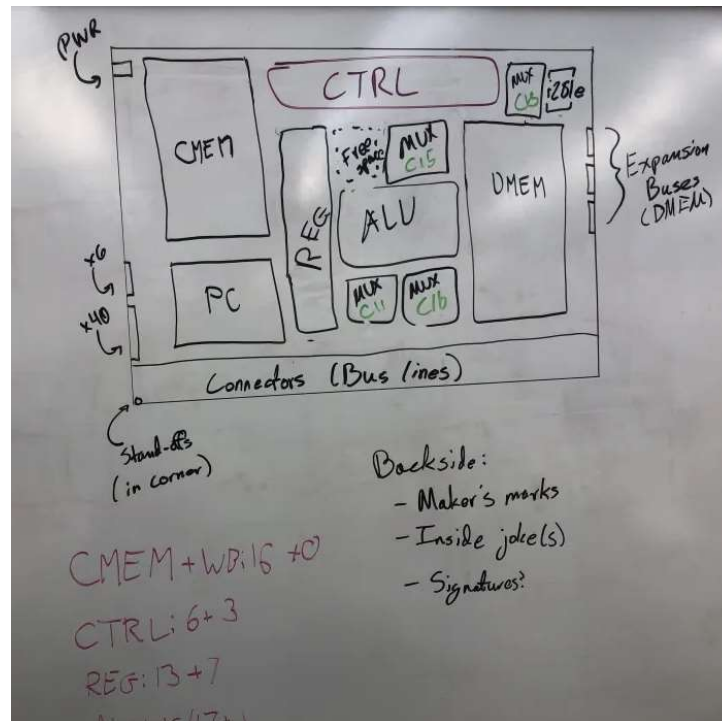 PWR
CTRL
MUX
C13
CMEM
Free
space
MUX
C15
DMEM
Expansion
Buses
(DMEM)
REG
ALU
x6
PC
MUX
C11
MUX
C16
x40
Connectors (Bus lines)
Stand-offs
(in corner)
Backside:
- Maker's marks
- Inside joke(s)
- Signatures?
CMEM + WB: 16 + 0
CTRL: 6 + 3
REG: 13 + 7